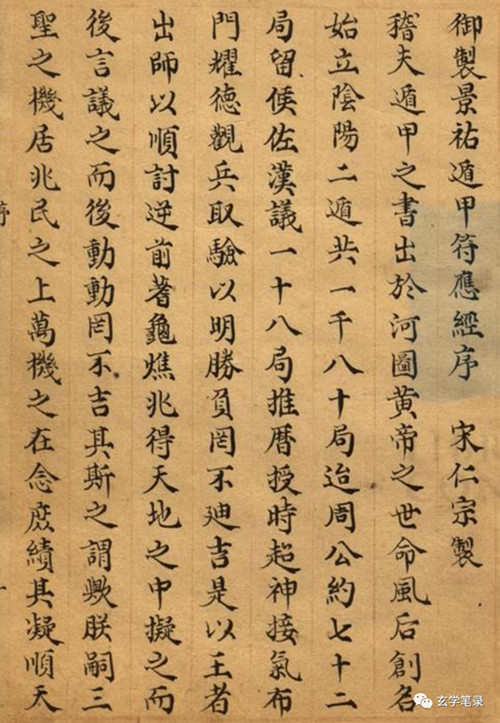 御製景祐遁甲符應經序　宋仁宗製
稽夫遁甲之書出於河圖黄帝之世命風后創名
始立陰陽二遁共一千八十局迨周公約七十二
局留侯佐漢議一十八局推曆授時超神接氣布
門耀德觀兵取驗以明勝負罔不廸吉是以王者
出師以順討逆前著龜燋兆得天地之中擬之而
後言議之而後動動罔不吉其斯之謂歟朕嗣三
聖之機居兆民之上萬機之在念庶績其凝順天
玄学笔录